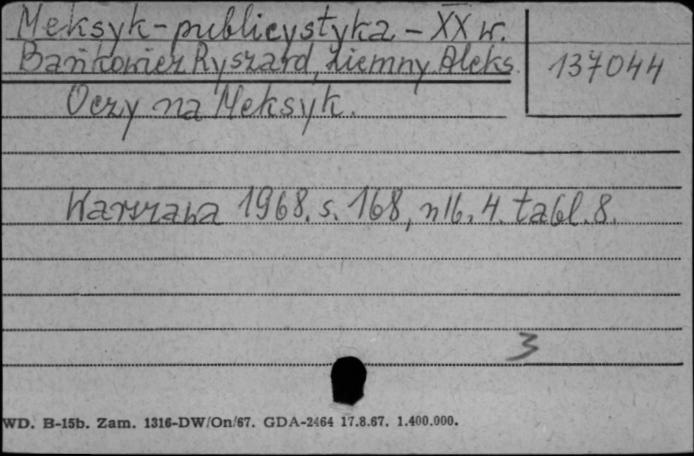 Meksyk - publicystyka - XX w.
Bańkowicz Ryszard, Ziemny Aleks. 137044
Oczy na Meksyk.
Warszawa 1968, s. 168, nlb. 4. tabl. 8.
3
WD. B-15b. Zam. 1316-DW/On/67. GDA-2464 17.8.67. 1.400.000.